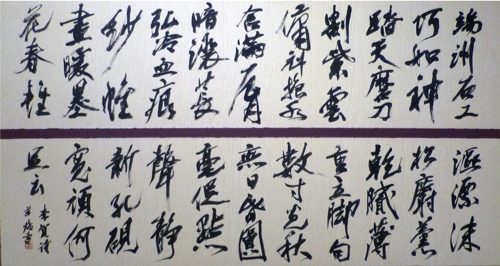 端洲石工
巧如神
踏天磨刀
割紫雲
傭刓抱水
含滿唇
暗灑萇
弘冷血痕
紗帷
晝暖墨
花春輕
漚漂沫
松麝薰
乾膩薄
重立脚勻
數寸光秋
無日昏圓
毫促點
聲靜
新孔硯
寬頑何
足云
李賀詩